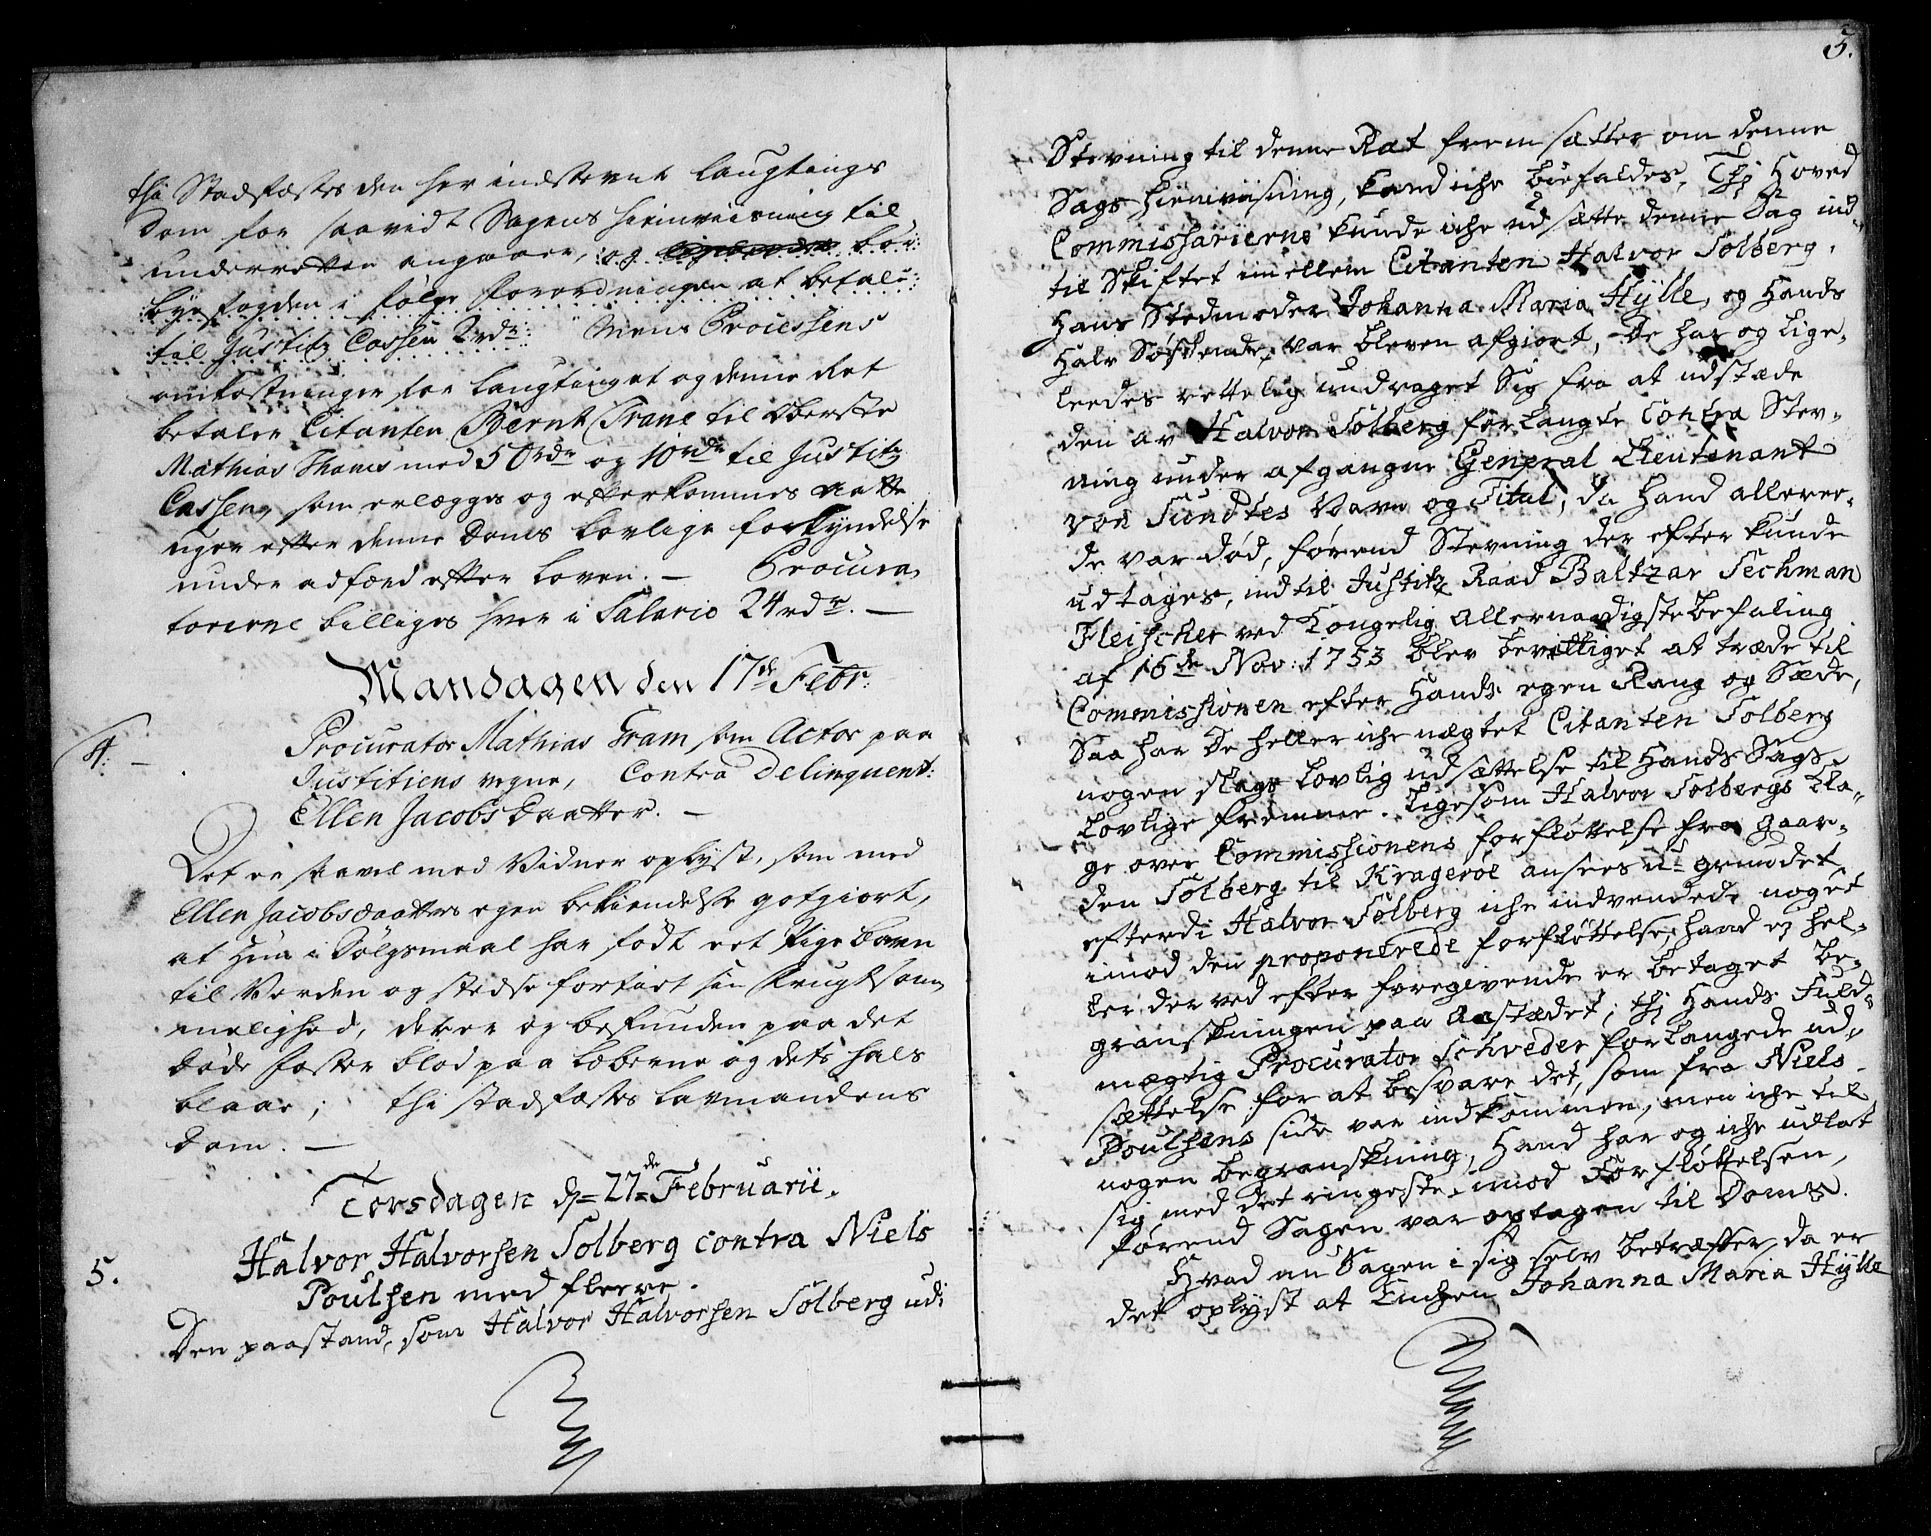 thi Stadfæstes den her indstevnte Laugtings
Dom for saavidt Sagens hienviisning til
underretten angaaer, og bør
byefogden i følge Forordningen at betale
til Justitz Cassen 2rdr: Mens Processens
omkostninger for Laugtinget og denne Ret
betaler Citanten Bernt Trane til Oberste
Mathias Thams med 50rdr og 10rdr til Justitz
Cassen, som erlægges og efterkommes otte
uger efter denne Doms lovlige forkyndelse
under adfærd efter Loven. – Procura,
torerne billiges hver i Salario 24rdr. –
Mandagen den 17de Febr:
4. –
Procurator Mathias Fram som Actor paa
Justitiens vegne, Contra Delinquent:
Ellen Jacobs Daatter. –
Det er saavel med Vidner oplyst, som med
Ellen Jacobsdaatters egen bekiendelse godgiort,
at Hun i Dølgsmaal har født et Pige Barn
til Verden og stedse fortiet sin Frugtsom,
melighed, der er og befunden paa det
døde foster blod paa Læberne og dets hals
blaae; thi stadfæstes Lavmandens
Dom. –
Torsdagen d= 27=de Februarii.
5.
Halvor Halvorsen Solberg contra Niels
Poulsen med fleere.
Den paastand, som Halvor Halvorsen Solberg udi
5.
Stevning til denne Ræt fremsætter om denne
Sags hienviisning, kand iche biefaldes, Thj Hoved
Commissarierne kunde iche udsætte denne Sag ind¬
til Skiftet imellem Citanten Halvor Solberg,
Hans Stedmoder Johanna Maria Hylle, og Hands
Halv Søskende, var bleven afgiort, De har og lige¬
leedes rettelig undraget Sig fra at udstæde
den av Halvor Solberg forlangte Contra Stev¬
ning under afgangne General Lieutenant
von Sundtes Navn og Titul, da Hand allere¬
de var død, førend Stevning der efter kunde
udtages, indtil Justitz Raad Baltzar Sechman
Fleischer ved Kongelig Allernaadigste befaling
af 16de Nov: 1753 blev bevilliget at træde til
Commissionen efter Hands egen Rang og Sæde,
Saa har De heller iche nægtet Citanten Solberg
nogen slags Lovlig udsættelse til Hands Sags
Lovlige fremme. Ligesom Halvor Solbergs Kla¬
ge over Commissionens forfløttelse fra gaar¬
den Solberg til Kragerøe ansees u= grundet,
efterdi Halvor Solberg iche indvendede noget
imod den proponerede forfløttelse, hand ej hel¬
ler derved efter foregivende er betaget be¬
granskningen paa Aastædet; thj Hands Fuld¬
mægtig Procurator Schreder forlangede ud¬
sættelse for at besvare det, som fra Niels
Poulsens side var indkommen, men iche til
nogen begranskning, Hand har og iche udlat
sig med det ringeste imod Forfløttelsen,
førend Sagen var optagen til Doms.
Hvad nu Sagen i sig selv betræffer, da er
det oplyst at Enchen Johanna Maria Hylle